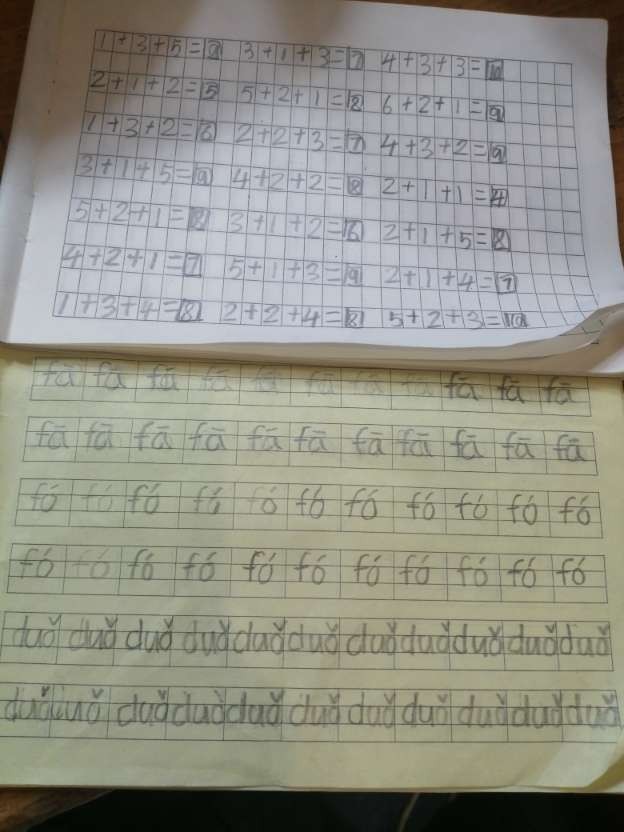 1+3+5=9 3+1+3=7 4+3+3=10
2+1+2=5 5+2+1=8 6+2+1=9
1+3+2=6 2+2+3=7 4+3+2=9
3+1+5=9 4+2+2=8 2+1+1=4
5+2+1=8 3+1+2=6 2+1+5=8
4+2+1=7 5+1+3=9 2+1+4=7
1+3+4=8 2+2+4=8 5+2+3=10
fā fā fā fā fā fā fā fā fā fā fā
fā fā fā fā fā fā fā fā fā fā fā
fó fó fó fó fó fó fó fó fó fó fó
fó fó fó fó fó fó fó fó fó fó fó
duǒ duǒ duǒ duǒ duǒ duǒ duǒ duǒ duǒ duǒ duǒ
duǒ duǒ duǒ duǒ duǒ duǒ duǒ duǒ duǒ duǒ duǒ